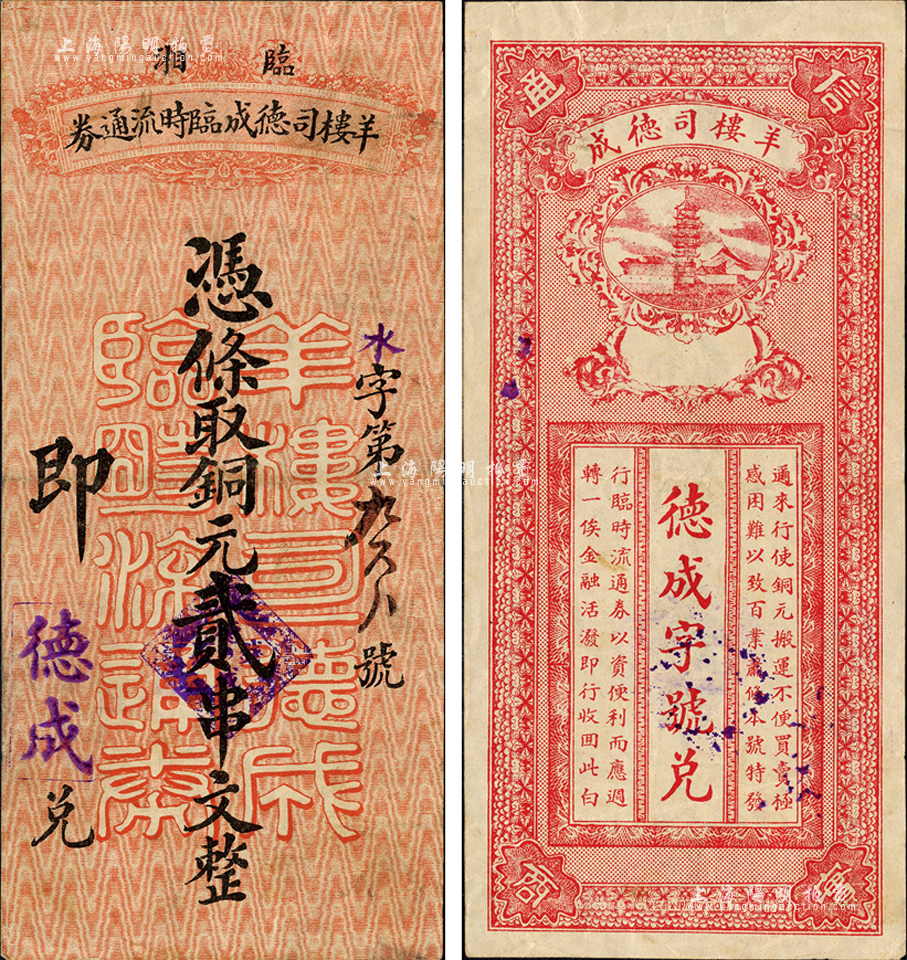 上海陽明拍賣
www.yangmingauction.com
臨湘
羊樓司德成臨時流通券
水字第九六八號
憑條取銅元貳串文整
即
德成
兑
羊樓司德成臨時流通券
上海陽明拍賣
www.yangmingauction.com
信通
羊樓司德成
邇來行使銅元搬運不便買賣極
感困難以致百業蕭條本號特發
德成字號兑
行臨時流通券以資便利而應週
轉一俟金融活潑即行收囬此白
上海陽明拍賣
www.yangmingauction.com